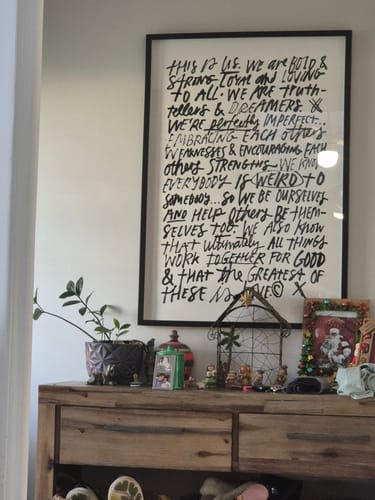 THIS IS US. WE ARE BOLD &
STRONG LOYAL and LOVING
TO ALL. WE ARE TRUTH-
tellers & DREAMERS X
WE'RE perfectly IMPERFECT...
EMBRACING EACH others
WEAKNESSES & ENCOURAGING EACH
others STRENGTHS— WE KNOW
EVERYBODY IS WEIRD TO
SOMEBODY...SO WE BE OURSELVES
AND HELP others BE THEM-
SELVES TOO. WE ALSO KNOW
THAT ultimately ALL THINGS
WORK TOGETHER FOR GOOD
& THAT the GREATEST OF
THESE IS LOVE. © X